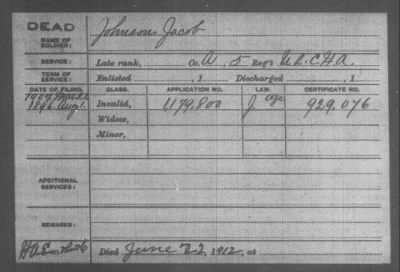 DEAD
NAME OF SOLDIER: Johnson Jacob
SERVICE: Late rank, Co. A, 5 Reg't U.S.C.H.A.
TERM OF SERVICE: Enlisted , 1 Discharged , 1
DATE OF FILING. CLASS. APPLICATION NO. LAW. CERTIFICATE NO.
1907
1896 Aug 1. Invalid, 1179.800 J age 929.076
Widow,
Minor,
ADDITIONAL SERVICES:
REMARKS:
Died June 22, 1912, at